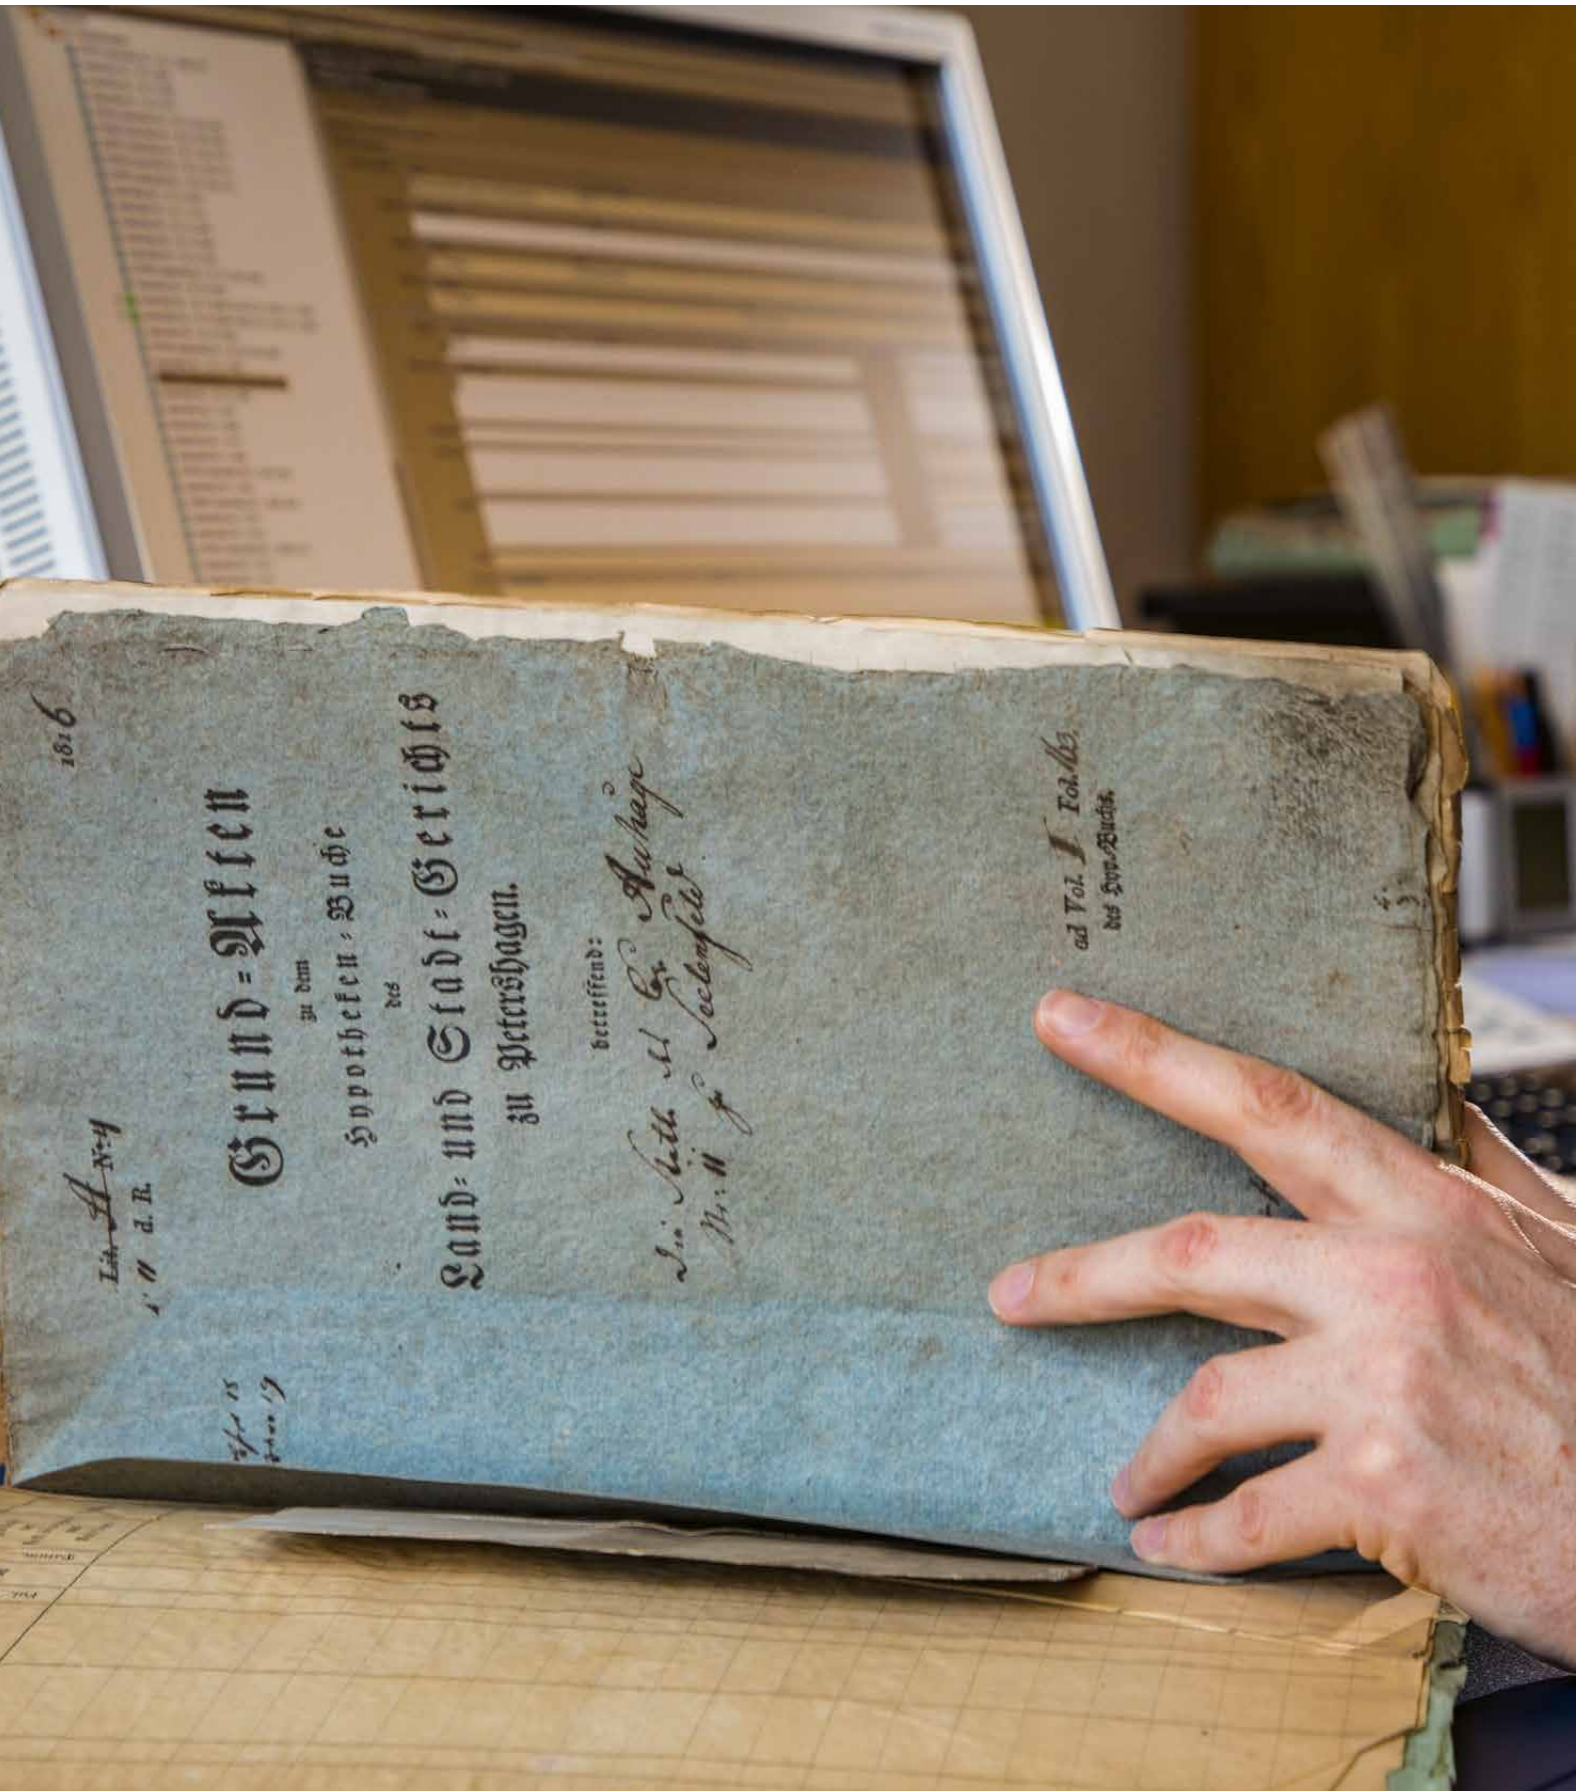 1816
Lit. A No 4
11 d. R.
Grund=Akten
zu dem
Hypotheken=Buche
des
Land= und Stadt=Gerichts
zu Petershagen.
betreffend:
Die Stette sub Col. Auhage
Nr: 11 zu Seelenfeld
ad Vol. I Fol. 163.
des Hyp.=Buchs.